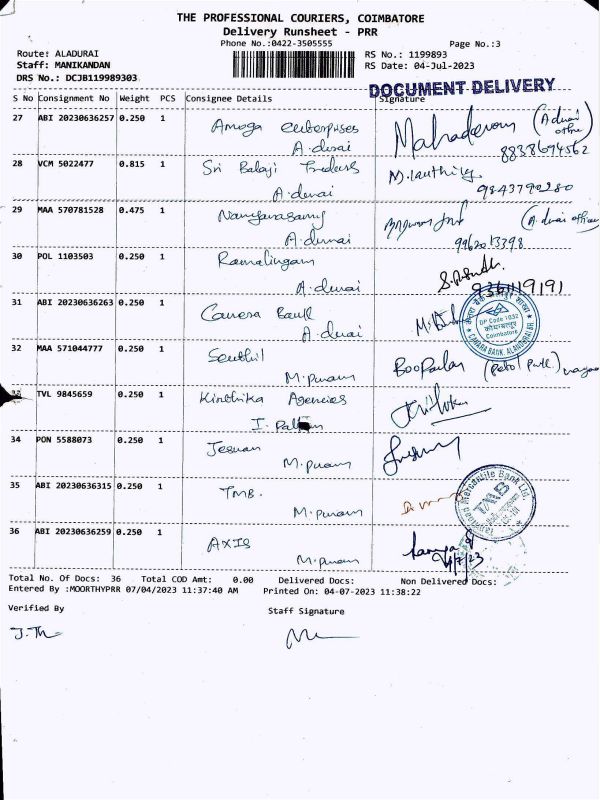 THE PROFESSIONAL COURIERS, COIMBATORE
Delivery Runsheet - PRR
Phone No.:0422-3505555
Page No.:3
Route: ALADURAI
RS No.: 1199893
Staff: MANIKANDAN
RS Date: 04-Jul-2023
DRS No.: DCJB119989303
DOCUMENT DELIVERY
S No Consignment No Weight PCS Consignee Details Signature
27 ABI 20230636257 0.250 1 Amoga enterprises
A.durai
8838694562
28 VCM 5022477 0.815 1 Sri Balaji Traders
A.durai
9843790280
29 MAA 570781528 0.475 1
A.durai
9962013398
30 POL 1103503 0.250 1 Ramalingam
A.durai
31 ABI 20230636263 0.250 1 Canera Bank
A.durai
DP Code 1032
Coimbatore
CANARA BANK, ALANDURAI
32 MAA 571044777 0.250 1 Senthil
M.puram
33 TVL 9845659 0.250 1 Kirthika Agencies
34 PON 5588073 0.250 1
M.puram
35 ABI 20230636315 0.250 1 TMB.
M.puram
Mercantile Bank Ltd.
TMB
36 ABI 20230636259 0.250 1 AXIS
M.puram
4/7/23
Total No. Of Docs: 36 Total COD Amt: 0.00 Delivered Docs: Non Delivered Docs:
Entered By :MOORTHYPRR 07/04/2023 11:37:40 AM Printed On: 04-07-2023 11:38:22
Verified By
Staff Signature